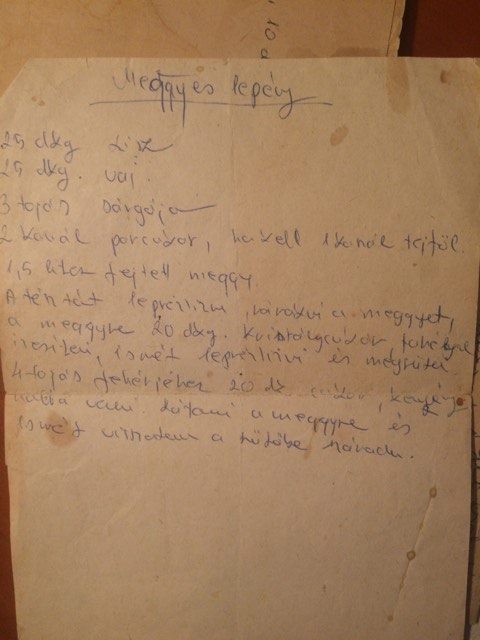 Meggyes lepény
25 dkg liszt
25 dkg. vaj.
3 tojás sárgája
2 kanál porcukor, ha kell 1 kanál tejföl.
1,5 liter fejtett meggy
A tésztát leprésizni, rárakni a meggyet,
a meggyre 20 dkg. Kristálycukor,
ismét és megsütni
4 tojás fehérjéhez 20 dk cukor, kemény
habbá verni. a meggyre és
ismét a sütőbe rakni.